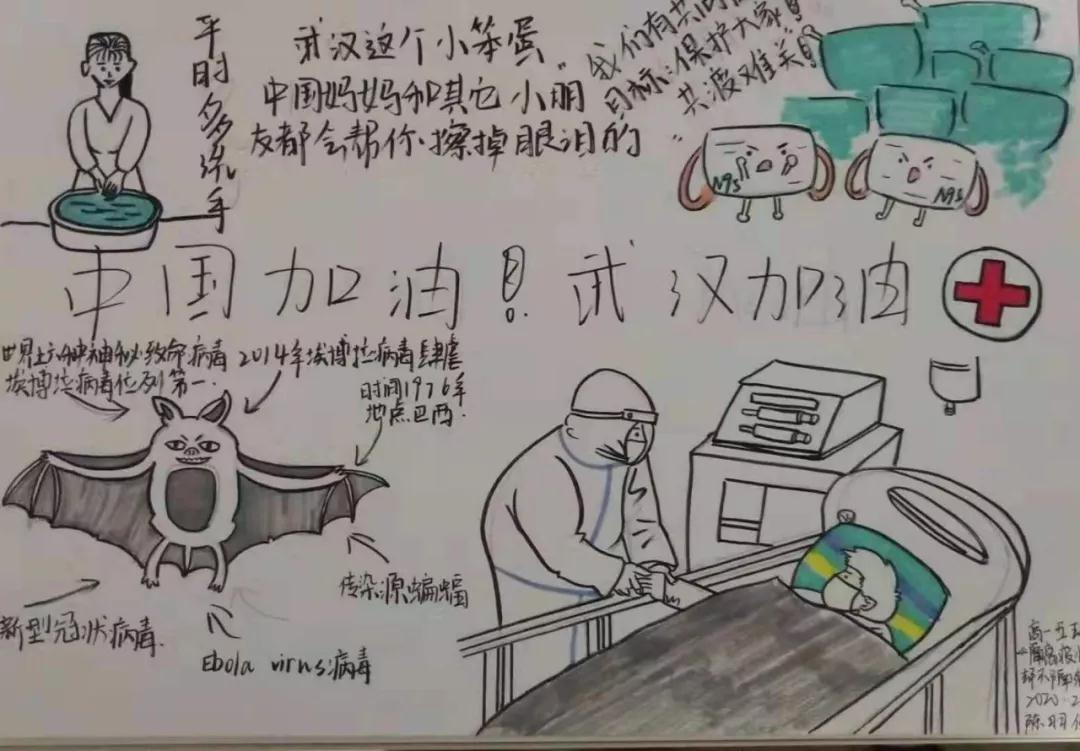 平时多洗手
武汉这个小笨蛋
中国妈妈和其它小朋
友都会帮你擦掉眼泪的
我们有共同
目标:保护大家!
共渡难关!
N95
N95
中国加油!武汉加油
世界上六种神秘致命病毒
埃博拉病毒位列第一.
2014年埃博拉病毒肆虐
时间1976年
地点巴西.
传染源蝙蝠
新型冠状病毒.
Ebola virns病毒
高一五
2020.2
陈羽